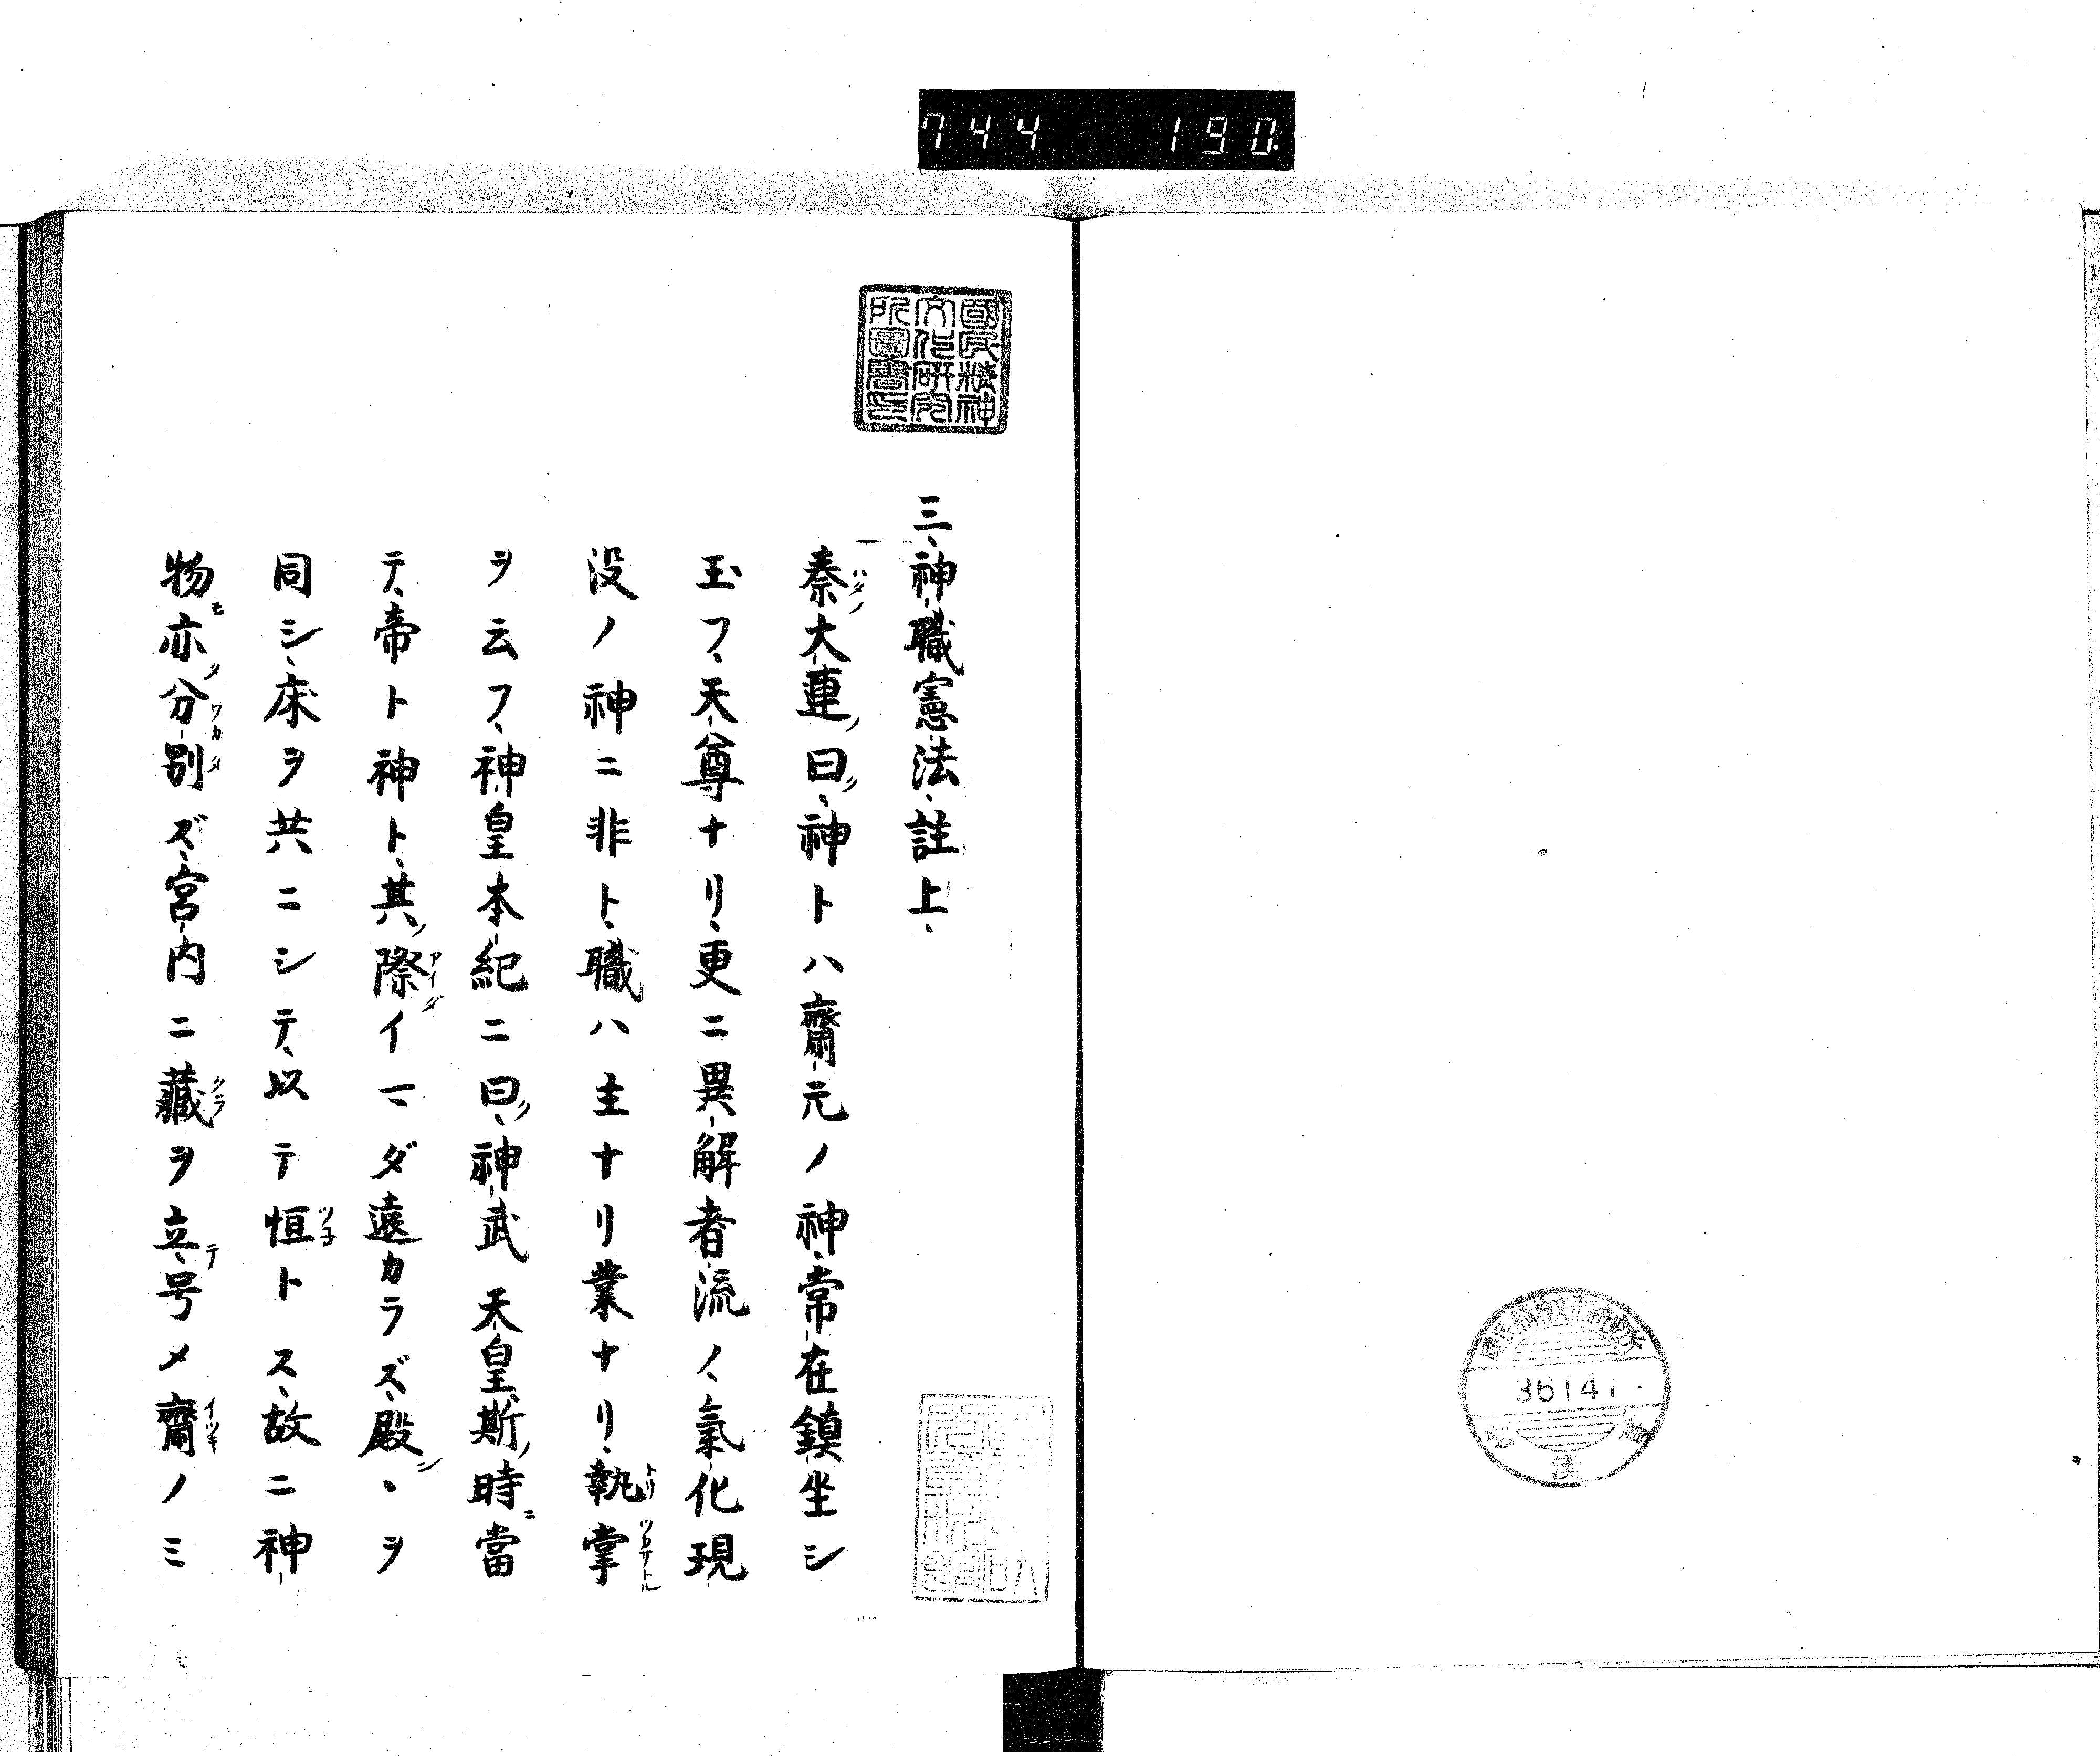 744 190
國民精神
文化研究
所圖書印
三、神職憲法、註上、
秦大連ノ曰、神トハ齋元ノ神、常在鎮坐シ
玉フ、天尊ナリ、更ニ異解者流ノ氣化現
没ノ神ニ非ト、職ハ主ナリ業ナリ、執掌
ヲ云フ、神皇本紀ニ曰、神武天皇、斯ノ時ニ當
テ、帝ト神ト、其ノ際イマダ遠カラズ、殿ヲ
同シ、床ヲ共ニシテ、以テ恒トス、故ニ神
物モ亦タ分別ズ、宮内ニ藏ヲ立テ、号メ齋ノミ
國民精神文化研究所